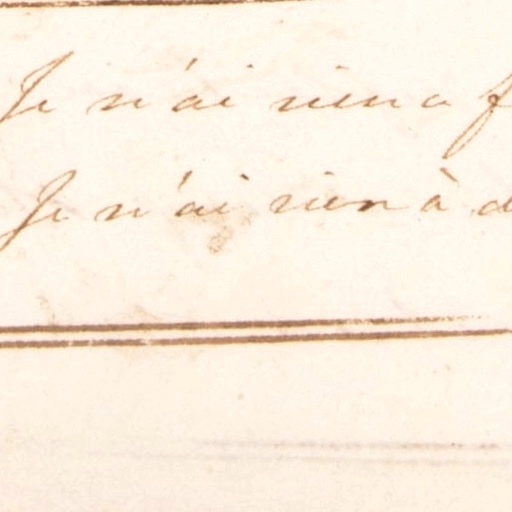 Je n'ai rien a f
Je n'ai rien à d